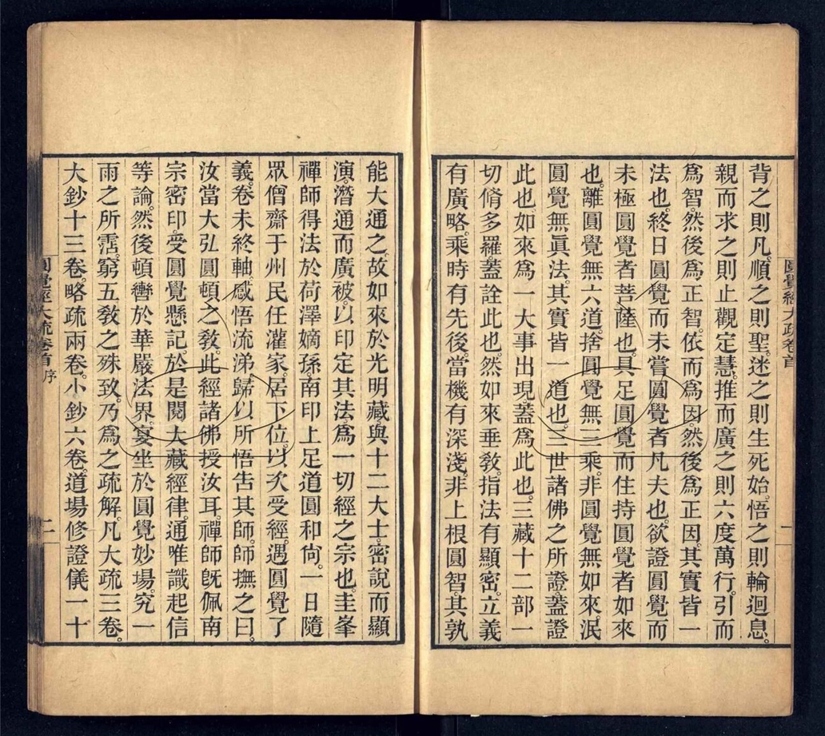 圓覺經大疏卷首
一
背之則凡。順之則聖。迷之則生死始。悟之則輪迴息。
親而求之則止觀定慧。推而廣之則六度萬行。引而
爲智。然後爲正智。依而爲因。然後爲正因。其實皆一
法也。終日圓覺而未嘗圓覺者凡夫也。欲證圓覺而
未極圓覺者菩薩也。具足圓覺而住持圓覺者如來
也。離圓覺無六道。捨圓覺無三乘。非圓覺無如來。泯
圓覺無眞法。其實皆一道也。三世諸佛之所證。蓋證
此也。如來爲一大事出現。蓋爲此也。三藏十二部一
切脩多羅。蓋詮此也。然如來垂敎。指法有顯密。立義
有廣略。乘時有先後。當機有深淺。非上根圓智。其孰
能大通之。故如來於光明藏與十二大士密說而顯
演。潛通而廣被。以印定其法。爲一切經之宗也。圭峯
禪師得法於荷澤嫡孫。南印上足道圓和尙。一日隨
眾僧齋于州民任灌家。居下位。以次受經。遇圓覺了
義。卷未終軸。感悟流涕。歸以所悟告其師。師撫之曰。
汝當大弘圓頓之敎。此經諸佛授汝耳。禪師旣佩南
宗密印。受圓覺懸記。於是閱大藏經律。通唯識起信
等論。然後頓轡於華嚴法界。宴坐於圓覺妙場。究一
雨之所霑。窮五敎之殊致。乃爲之疏解。凡大疏三卷。
大鈔十三卷。略疏兩卷。小鈔六卷。道場修證儀一十
圓覺經大疏卷首 序
二